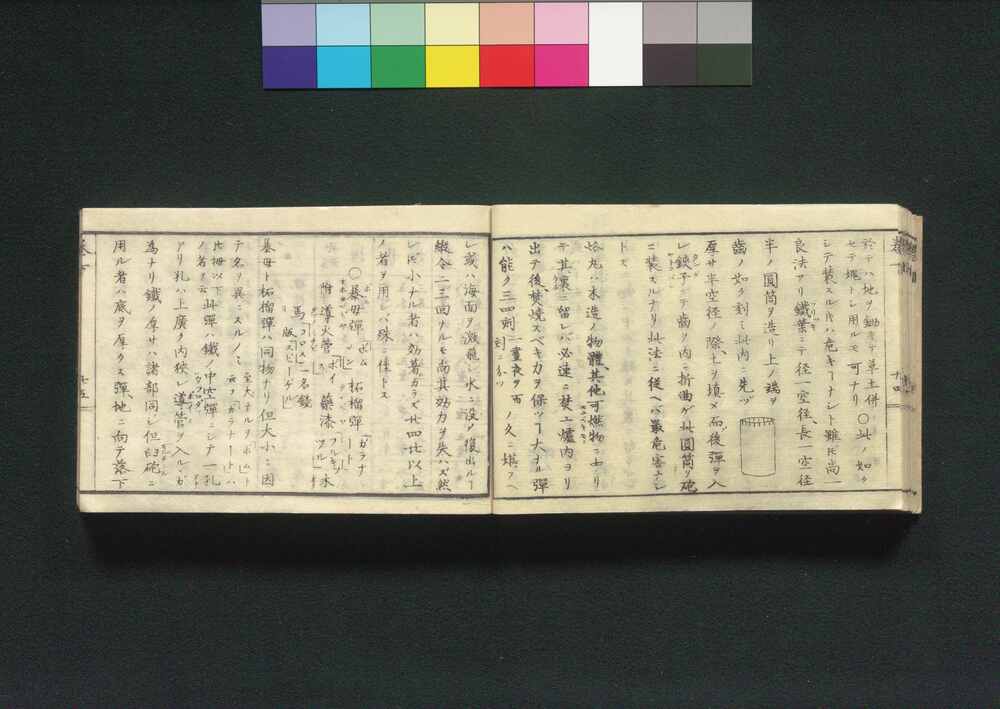 於テハ地ヲ鋤キテ草土併セテ塊トシ用ルモ可ナリ ○此ノ如ク
シテ装スル𪜈ハ危キヿナシト雖𪜈尚一
良法アリ鐵葉ニテ一空径長一空径
半ノ圓筒ヲ造リ上ノ端ヲ
齒ノ如ク刻ミ此内ニ先ヅ
厚サ半空径ノ際土ヲ填メ後弾ヲ入
レ鋏子ニテ齒ヲ内ニ折曲ゲ此圓筒ヲ砲
ニ装スルナリ此法ニ従ヘバ最危害ナシ
トス
烙丸ハ木造ノ物體其他可燃物ニ中リ
テ其裏ニ留レバ必速ニ焚エ爐内ヨリ
出テ後焚焼スベキ力ヲ保ツヿ大ナル弾
ハ能ク三四刻 一晝夜ヲ百刻ニ分ツ ノ久ニ堪フヘ
シ或ハ海面ヲ激飛シ水ニ没メ復出ルヿ
縦令二三回ナルモ尚其効力ヲ失ハズ然
レ𪜈小ナル者ハ効著カラズ廿四比以上
ノ者ヲ用レバ殊ニ佳トス
○暴母弾 ボムメン 柘榴弾 ガラナート
附 導火管 ボイ 藥漆 水
馬
暴母ト柘榴弾ハ同物ナリ但大小ニ因
テ名ヲ異ニスルノミ 至大ナルヲボムト云フガラナートハ
此弾ハ鐵ノ中空弾ニシテ一孔
アリ孔ハ上廣ク内狭シ導管ヲ入ルヽガ
為ナリ鐵ノ厚サハ諸部同シ但臼砲ニ
用ル者ハ底ヲ厚クス弾地ニ向テ落下